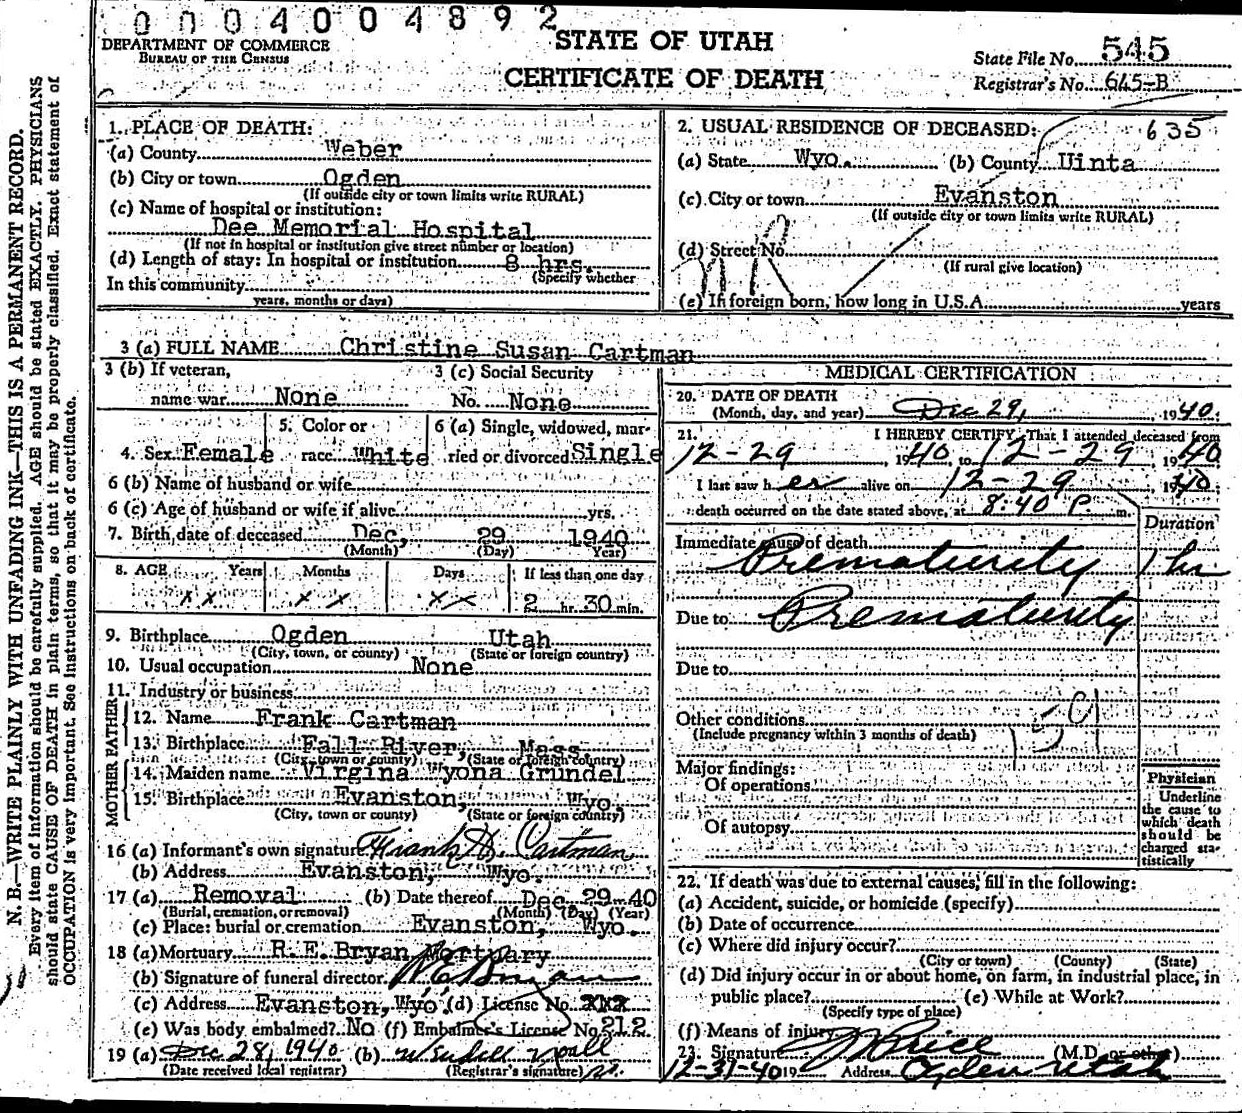 0004004892
DEPARTMENT OF COMMERCE
BUREAU OF THE CENSUS
STATE OF UTAH
CERTIFICATE OF DEATH
State File No. 545
Registrar's No. 645-B
N. B.—WRITE PLAINLY WITH UNFADING INK—THIS IS A PERMANENT RECORD.
Every item of information should be carefully supplied. AGE should be stated EXACTLY. PHYSICIANS
should state CAUSE OF DEATH in plain terms, so that it may be properly classified. Exact statement of
OCCUPATION is very important. See instructions on back of certificate.
1. PLACE OF DEATH:
(a) County Weber
(b) City or town Ogden
(If outside city or town limits write RURAL)
(c) Name of hospital or institution:
Dee Memorial Hospital
(If not in hospital or institution give street number or location)
(d) Length of stay: In hospital or institution 8 hrs.
(Specify whether
In this community
years, months or days)
2. USUAL RESIDENCE OF DECEASED: 635
(a) State Wyo. (b) County Uinta
(c) City or town Evanston
(If outside city or town limits write RURAL)
(d) Street No.
(If rural give location)
(e) If foreign born, how long in U.S.A. years
3 (a) FULL NAME Christine Susan Cartman
3 (b) If veteran, 3 (c) Social Security
name war None No. None
5. Color or 6 (a) Single, widowed, mar-
4. Sex Female race White ried or divorced Single
6 (b) Name of husband or wife
6 (c) Age of husband or wife if alive yrs.
7. Birth date of deceased Dec, 29 1940
(Month) (Day) Year)
8. AGE Years Months Days If less than one day
xx xx xx 2 hr. 30 min.
9. Birthplace Ogden Utah
(City, town, or county) (State or foreign country)
10. Usual occupation None
11. Industry or business
FATHER
12. Name Frank Cartman
13. Birthplace Fall River, Mass
(City, town or county) (State or foreign country)
MOTHER
14. Maiden name Virgina Wyona Grundel
15. Birthplace Evanston, Wyo,
(City, town or county) (State or foreign country)
16 (a) Informant's own signature Frank H. Cartman
(b) Address Evanston, Wyo.
17 (a) Removal (b) Date thereof Dec 29 40
(Burial, cremation, or removal) (Month) (Day) (Year)
(c) Place: burial or cremation Evanston, Wyo.
18 (a) Mortuary R.E. Bryan Mortuary
(b) Signature of funeral director R E Bryan
(c) Address Evanston, Wyo. (d) License No.
(e) Was body embalmed? No (f) Embalmer's License No 212
19 (a) Dec 28, 1940 (b)
(Date received local registrar) (Registrar's signature)
MEDICAL CERTIFICATION
20. DATE OF DEATH
(Month, day, and year) Dec 29, 1940.
21. I HEREBY CERTIFY, That I attended deceased from
12-29, 1940, to 12-29, 1940
I last saw h er alive on 12-29, 1940.
death occurred on the date stated above, at 8:40 P. m.
Duration
Immediate cause of death
Prematurity 1 hr
Due to Prematurity
Due to
159
Other conditions
(Include pregnancy within 3 months of death)
Major findings:
Of operations
Of autopsy
Physician
Underline
the cause to
which death
should be
charged sta-
tistically
22. If death was due to external causes, fill in the following:
(a) Accident, suicide, or homicide (specify)
(b) Date of occurrence
(c) Where did injury occur?
(City or town) (County) (State)
(d) Did injury occur in or about home, on farm, in industrial place, in
public place? (e) While at Work?
(Specify type of place)
(f) Means of injury
23. Signature Price (M.D. or other)
12-31-40 19 Address Ogden Utah